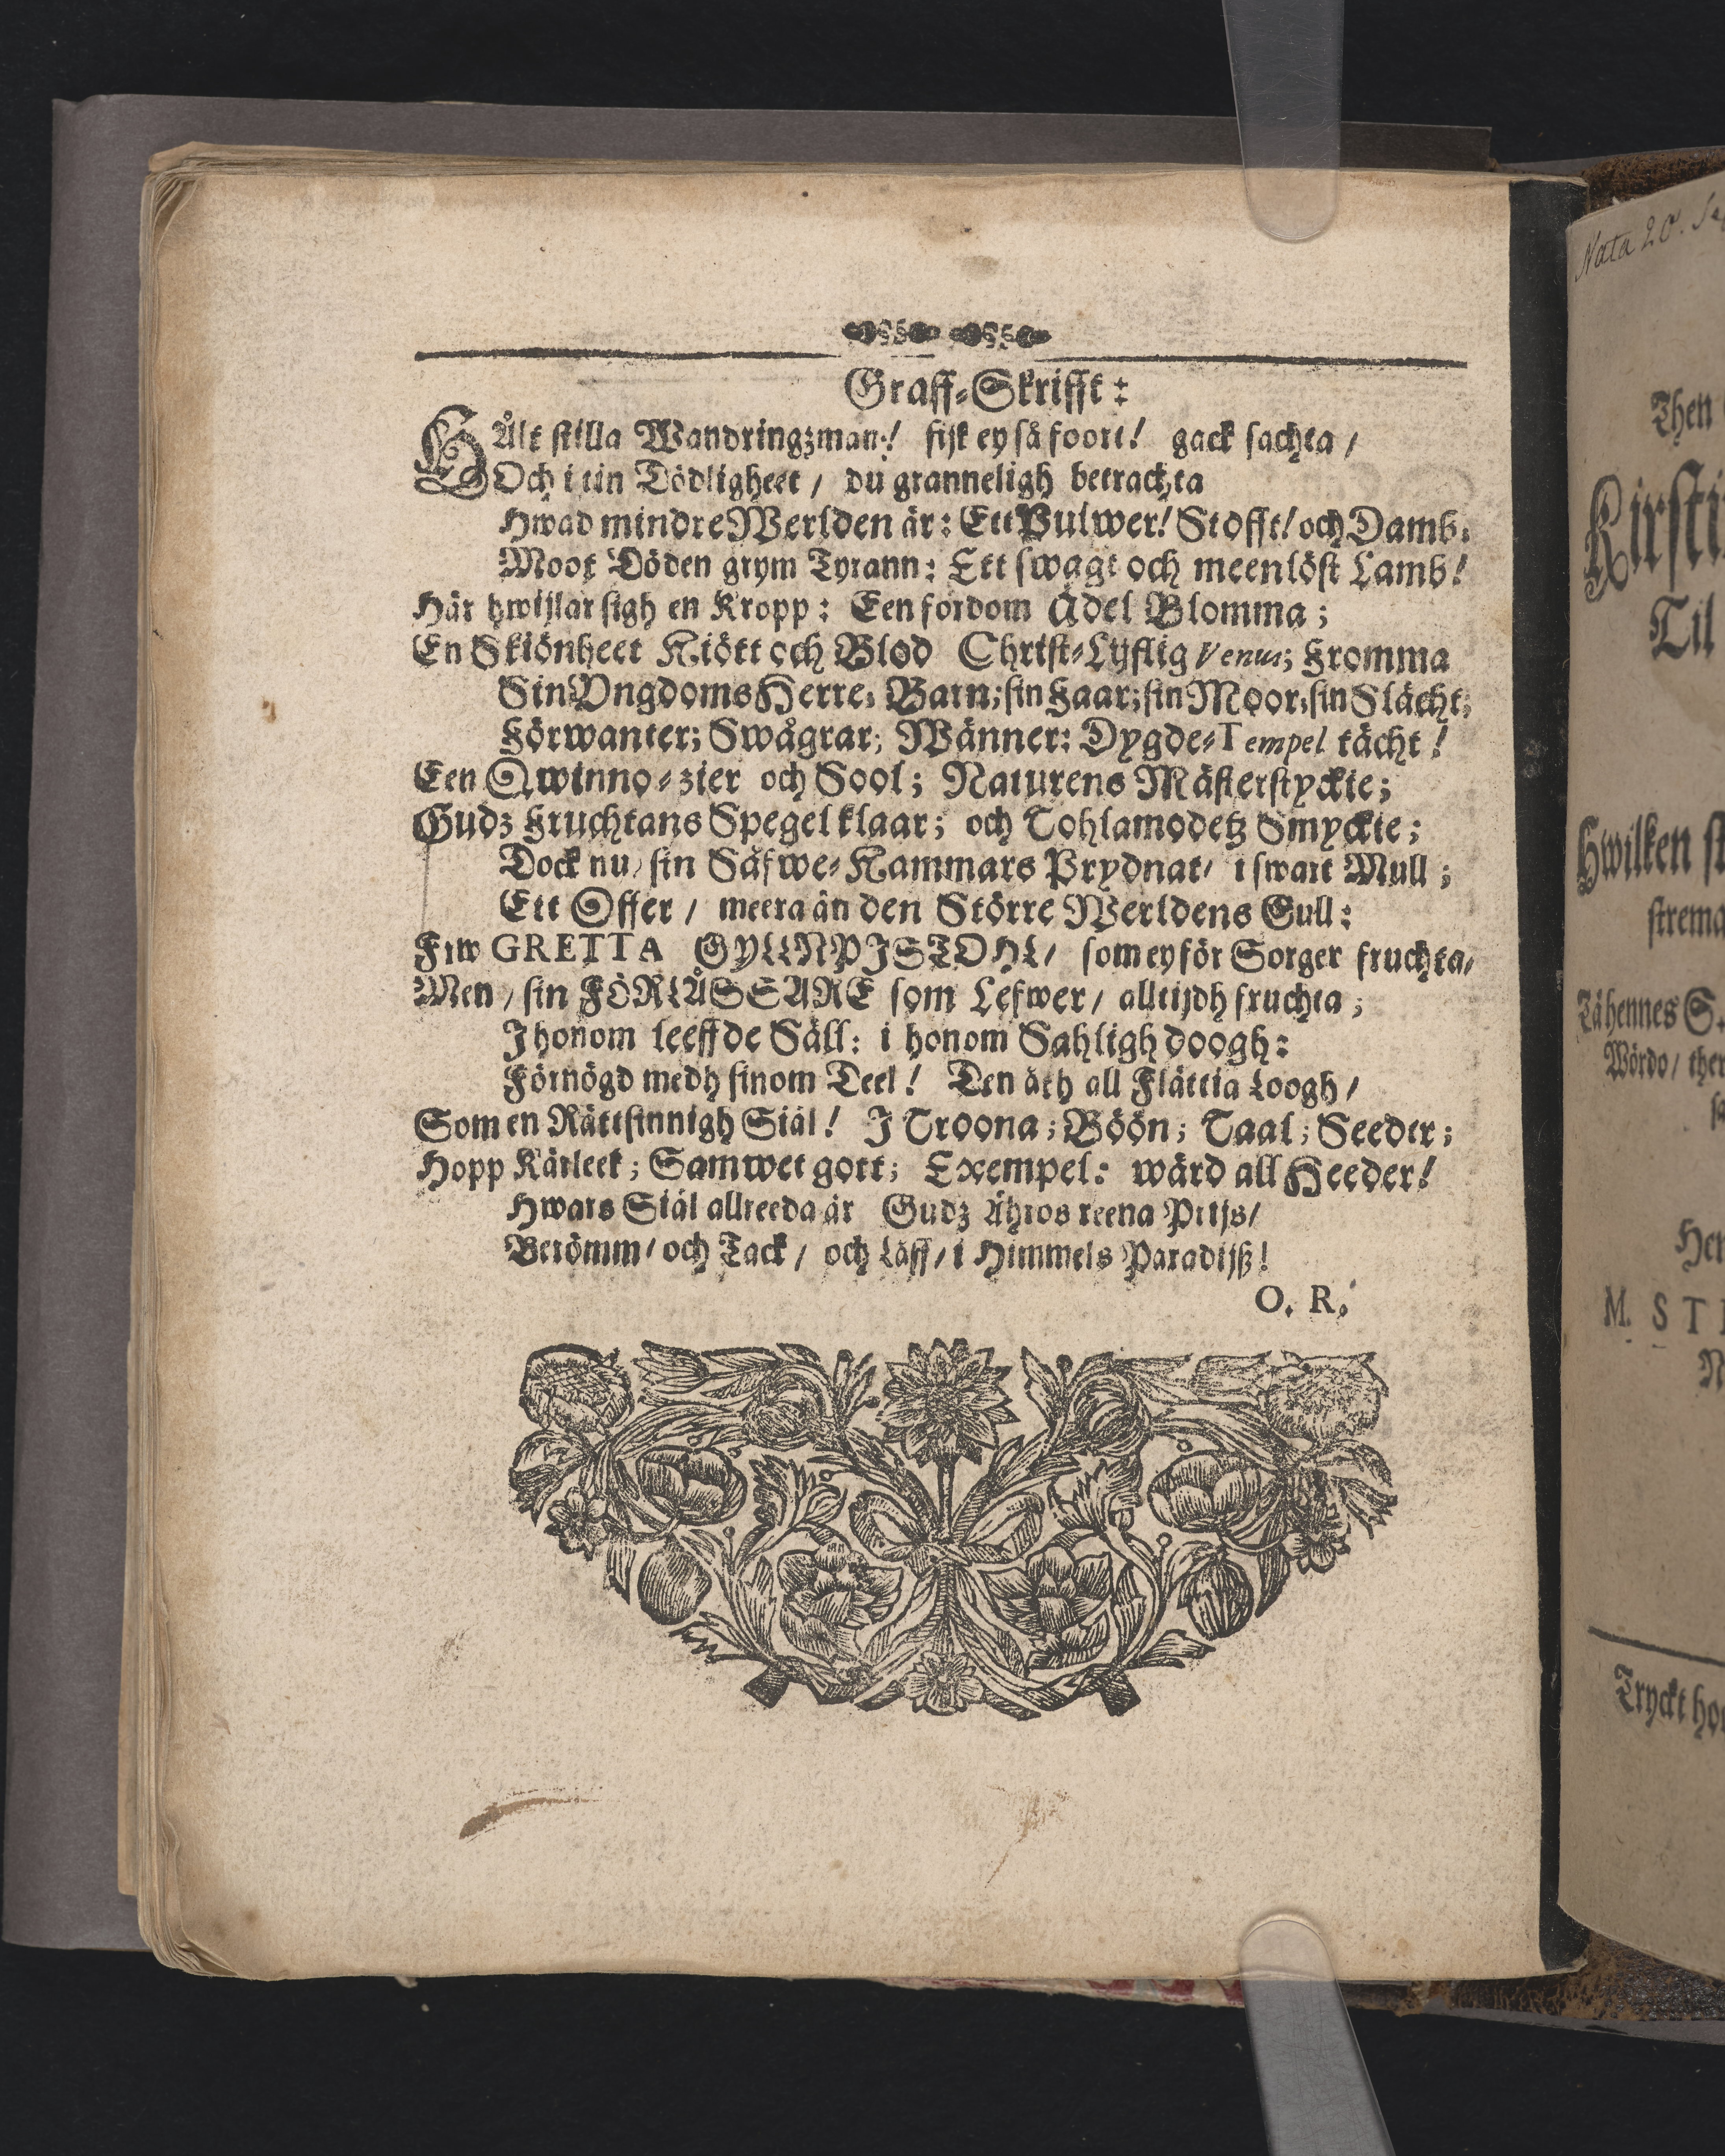 Graff-Skrifft:
HÅlt stilla Wandringzman! fijk ey så foort! gack sachta /
Och i tin Dödligheet / du granneligh betrachta
Hwad mindre Werlden är: Ett Pulwer! Stofft! och Damb.
Moot Döden grym Tyrann: Ett swagt och meenlöst Lamb!
Här hwijlar sigh en Kropp: Een fordom Ädel Blomma;
En Skiönheet Kiött och Blod Christ-Lyflig Venus; Fromma
Sin Vngdoms Herre, Barn; sin Faar; sin Moor; sin Slächt;
Förwanter; Swågrar; Wänner: Dygde-Tempel tächt!
Een Qwinno-zier och Sool; Naturens Mästerstyckie;
Gudz Fruchtans Spegel klaar; och Tohlamodetz Smyckie;
Dock nu / sin Säfwe-Kammars Prydnat / i swart Mull;
Ett Offer / meera än den Större Werldens Gull:
Frw GRETTA GYLLNPISTOHL / som ey för Sorger fruchta /
Men / sin FÖRLÅSSARE som Lefwer / alltijdh fruchta;
J honom leeffde Säll: i honom Sahligh doogh:
Förnögd medh sinom Deel! Den äth all Flättia Loogh /
Som en Rättsinnigh Siäl! J Troona; Böön; Taal; Seeder;
Hopp Kärleek; Samwet gott; Exempel: wärd all Heeder!
Hwars Siäl allreeda är Gudz Ähros reena Prijs /
Berömm / och Tack / och Låff / i Himmels Paradijß!
O. R.
Nata 20.
Then
Kirsti
Til
Hwilken st
strema
Tähennes S.
Wördo / ther
Her
M. ST
N
Tryckt ho